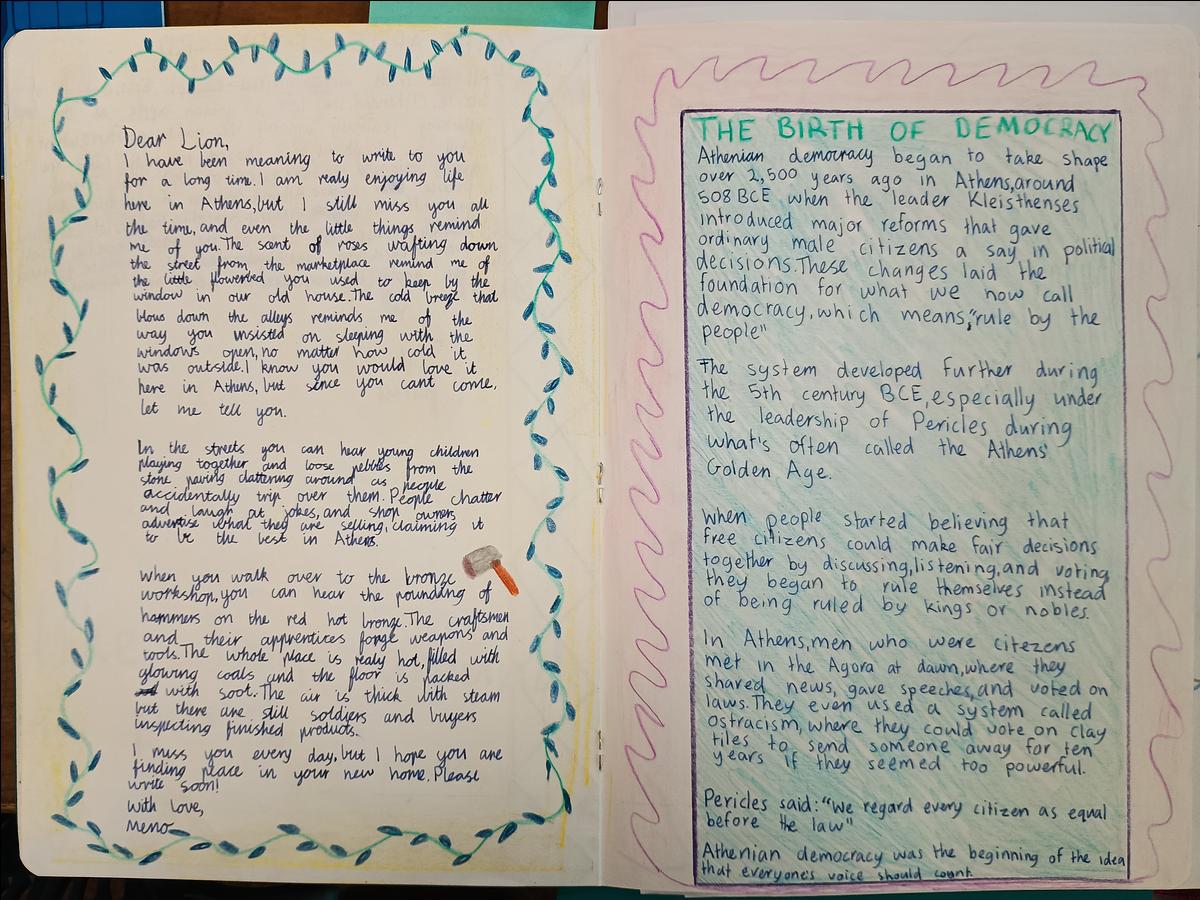 Dear Lion,
I have been meaning to write to you
for a long time. I am realy enjoying life
here in Athens, but I still miss you all
the time, and even the little things remind
me of you. The scent of roses wafting down
the street from the marketplace remind me of
the little flowerbed you used to keep by the
window in our old house. The cold breeze that
blows down the alleys reminds me of the
way you insisted on sleeping with the
windows open, no matter how cold it
was outside. I know you would love it
here in Athens, but sence you cant come,
let me tell you.
In the streets you can hear young children
playing together and loose pebbles from the
stone paving clattering around as people
accidentally trip over them. People chatter
and laugh at jokes, and shop owners
advertise what they are selling, claiming it
to be the best in Athens.
When you walk over to the bronze
workshop, you can hear the pounding of
hammers on the red hot bronze. The craftsmen
and their apprentices forge weapons and
tools. The whole place is realy hot, filled with
glowing coals and the floor is packed
with soot. The air is thick with steam
but there are still soldiers and buyers
inspecting finished products.
I miss you every day, but I hope you are
finding peace in your new home. Please
write soon!
With love,
Meno
THE BIRTH OF DEMOCRACY
Athenian democracy began to take shape
over 2,500 years ago in Athens, around
508 BCE when the leader Kleisthenses
introduced major reforms that gave
ordinary male citizens a say in political
decisions. These changes laid the
foundation for what we now call
democracy, which means, "rule by the
people"
The system developed further during
the 5th century BCE, especially under
the leadership of Pericles during
what's often called the Athens'
Golden Age.
When people started believing that
free citizens could make fair decisions
together by discussing, listening, and voting,
they began to rule themselves instead
of being ruled by kings or nobles.
In Athens, men who were citezens
met in the Agora at dawn, where they
shared news, gave speeches, and voted on
laws. They even used a system called
ostracism, where they could vote on clay
tiles to send someone away for ten
years if they seemed too powerful.
Pericles said: "We regard every citizen as equal
before the law"
Athenian democracy was the beginning of the idea
that everyone's voice should count.